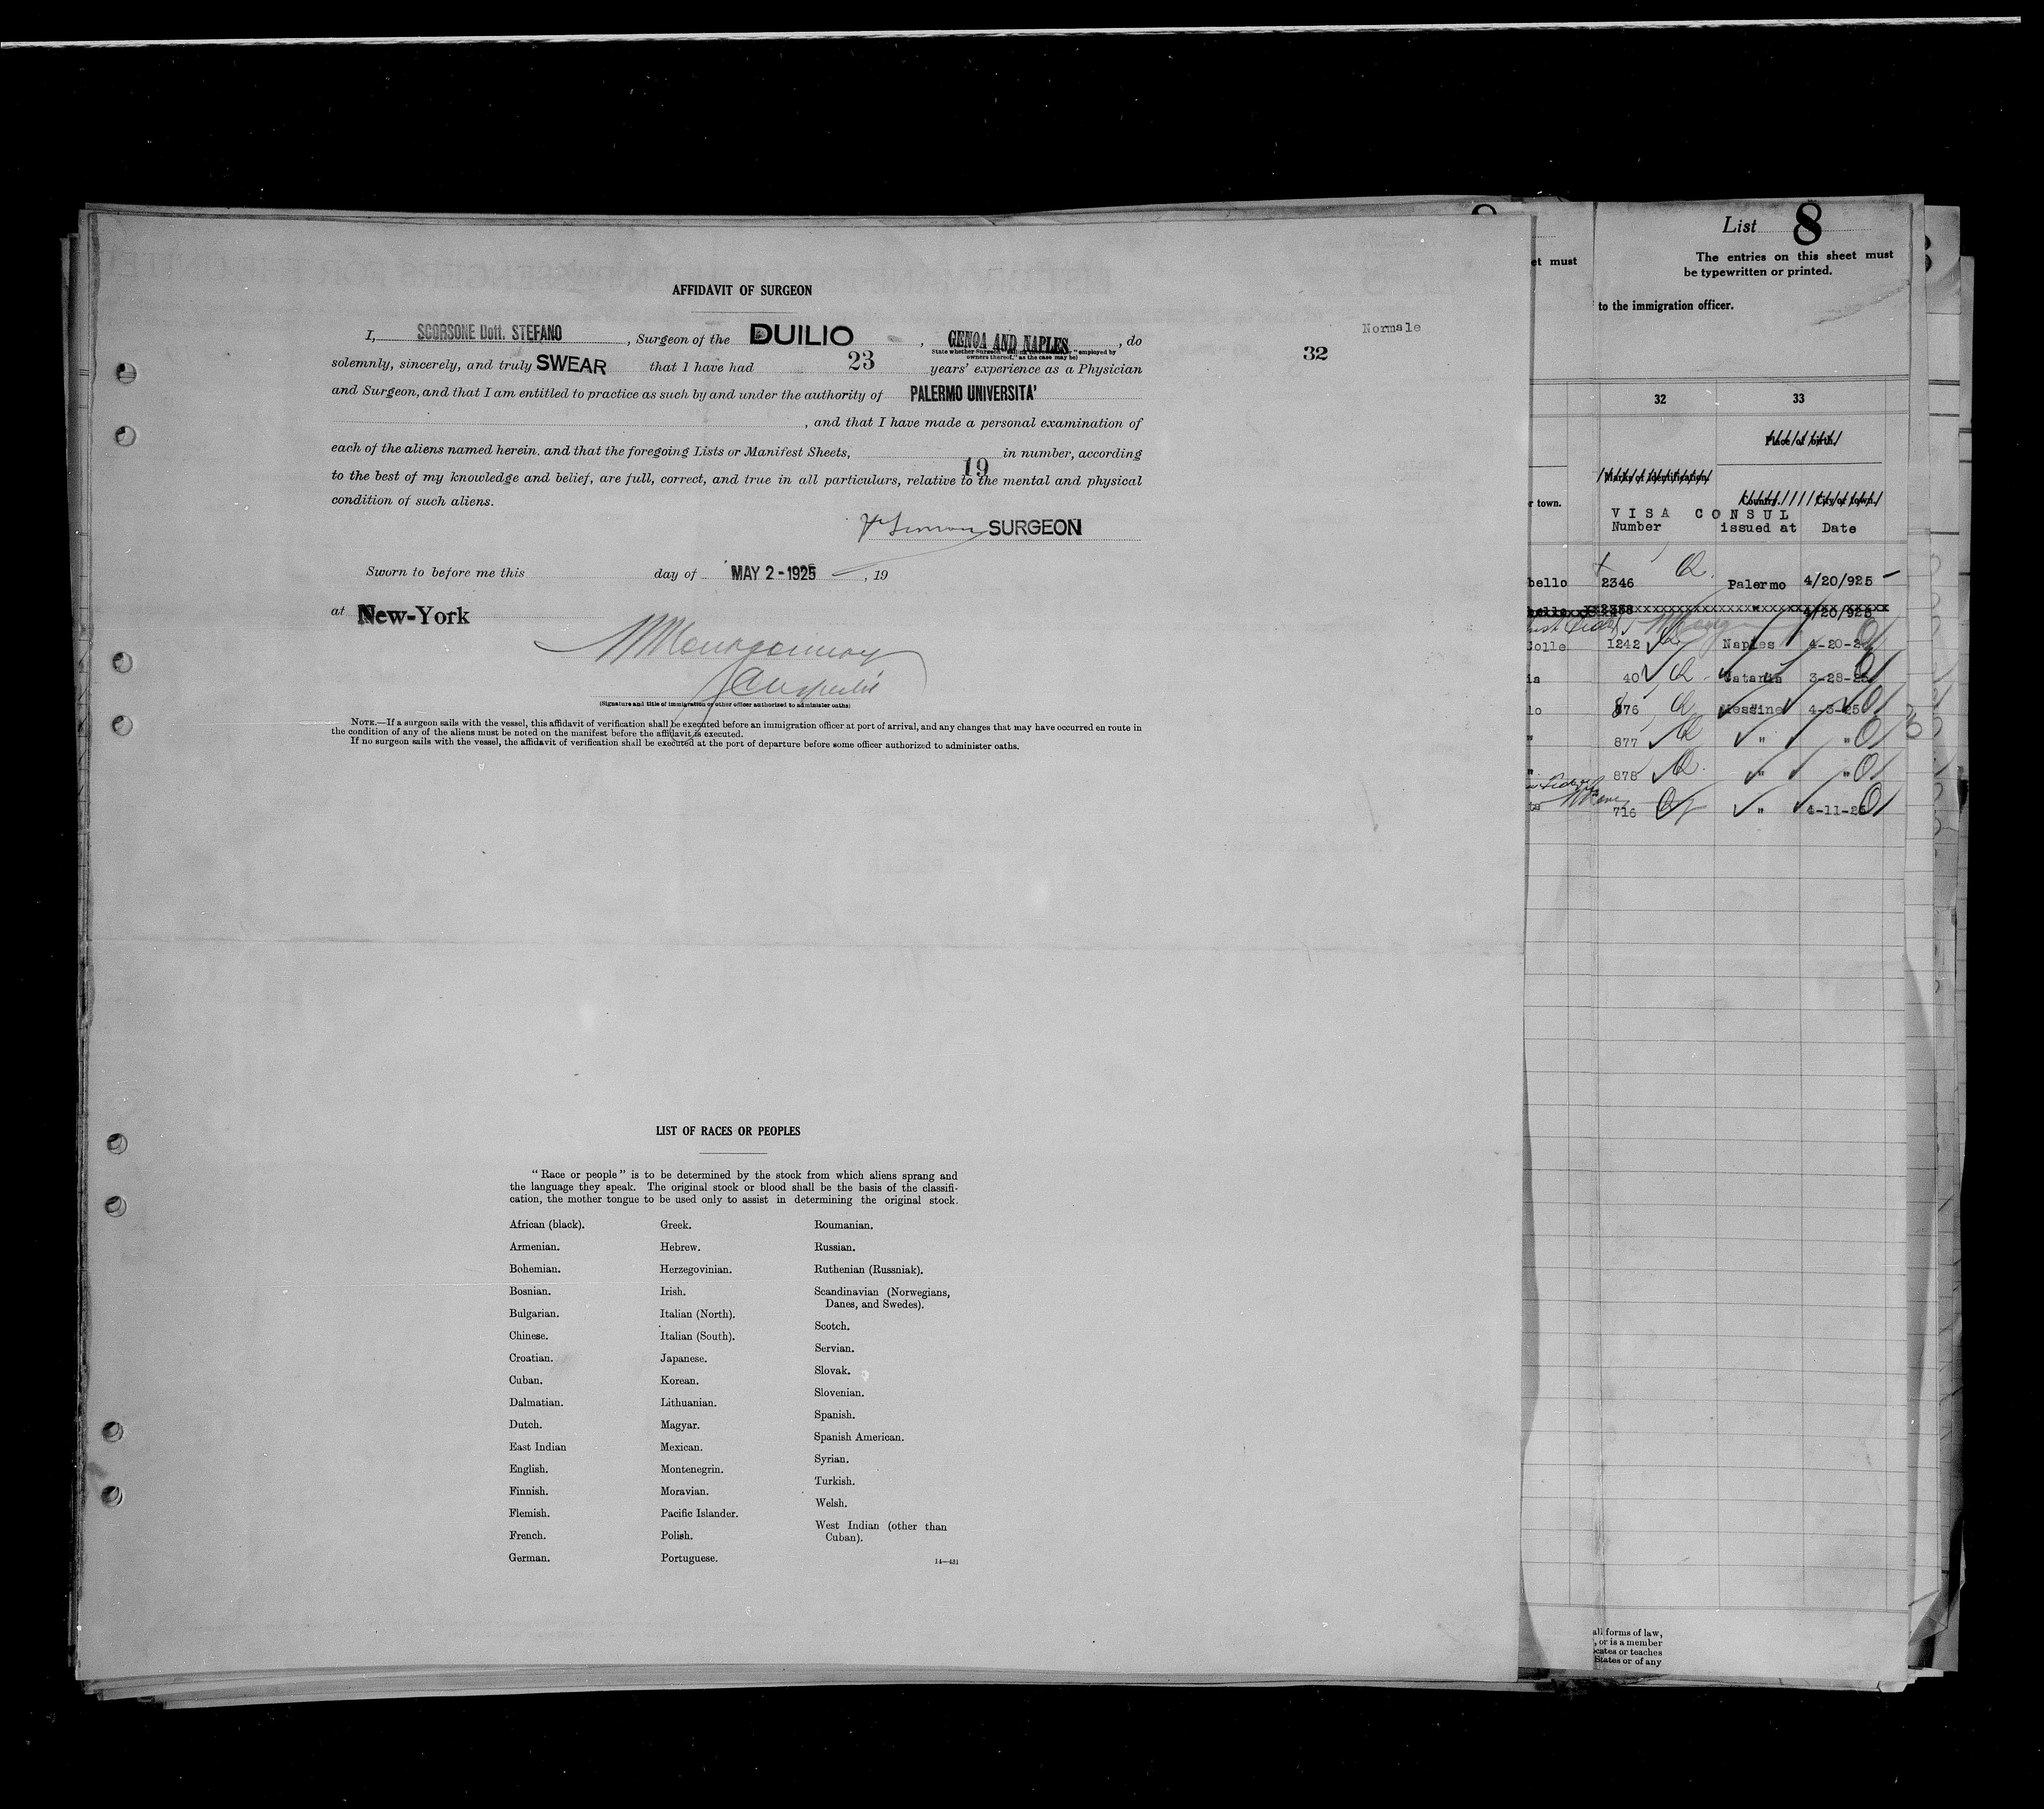 AFFIDAVIT OF SURGEON
I, SCORSONE Dott. STEFANO, Surgeon of the DUILIO, GENOA AND NAPLES, do
State whether Surgeon employed by
owners thereof," as the case may be)
solemnly, sincerely, and truly SWEAR that I have had 23 years' experience as a Physician
and Surgeon, and that I am entitled to practice as such by and under the authority of PALERMO UNIVERSITA'
, and that I have made a personal examination of
each of the aliens named herein, and that the foregoing Lists or Manifest Sheets, 19 in number, according
to the best of my knowledge and belief, are full, correct, and true in all particulars, relative to the mental and physical
condition of such aliens.
SURGEON
Sworn to before me this day of MAY 2-1925, 19
at New-York
(Signature and title of immigration or other officer authorized to administer oaths)
NOTE.—If a surgeon sails with the vessel, this affidavit of verification shall be executed before an immigration officer at port of arrival, and any changes that may have occurred en route in
the condition of any of the aliens must be noted on the manifest before the affidavit is executed.
If no surgeon sails with the vessel, the affidavit of verification shall be executed at the port of departure before some officer authorized to administer oaths.
Normale
32
LIST OF RACES OR PEOPLES
"Race or people" is to be determined by the stock from which aliens sprang and
the language they speak. The original stock or blood shall be the basis of the classifi-
cation, the mother tongue to be used only to assist in determining the original stock.
African (black).
Armenian.
Bohemian.
Bosnian.
Bulgarian.
Chinese.
Croatian.
Cuban.
Dalmatian.
Dutch.
East Indian
English.
Finnish.
Flemish.
French.
German.
Greek.
Hebrew.
Herzegovinian.
Irish.
Italian (North).
Italian (South).
Japanese.
Korean.
Lithuanian.
Magyar.
Mexican.
Montenegrin.
Moravian.
Pacific Islander.
Polish.
Portuguese.
Roumanian.
Russian.
Ruthenian (Russniak).
Scandinavian (Norwegians,
Danes, and Swedes).
Scotch.
Servian.
Slovak.
Slovenian.
Spanish.
Spanish American.
Syrian.
Turkish.
Welsh.
West Indian (other than
Cuban).
14—431
List 8
et must
The entries on this sheet must
be typewritten or printed.
to the immigration officer.
32 33
Place of birth.
Marks of identification.
Country. City or town.
r town.
VISA CONSUL
Number issued at Date
bello 2346 Palermo 4/20/925
2358 " 4/20/925
Colle 1242 Naples 4-20-25
ia 40 Catania 3-28-25
lo 876 Messine 4-3-25
" 877 " "
" 878 " "
716 " 4-11-25
all forms of law,
, or is a member
ocates or teaches
States or of any